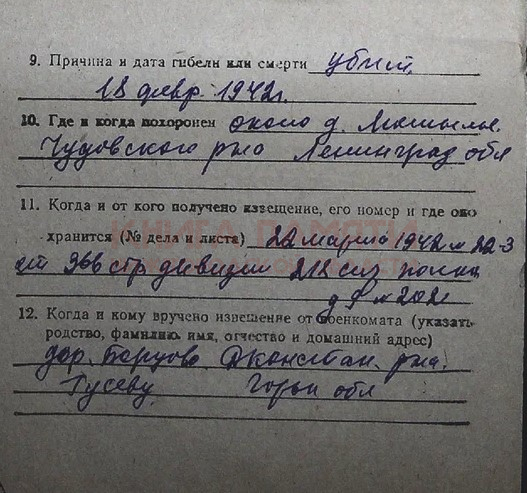 9. Причина и дата гибели или смерти убит.
18 февр. 1942г.
10. Где и когда похоронен около д.
Чудовского р-но Ленинград обл
11. Когда и от кого получено извещение, его номер и где оно
КНИГА ПАМЯТИ
хранится (№ дела и листа) 22 марта 1942 № 22-3
от 366 стр дивизии полка
12. Когда и кому вручено извещение от военкомата (указать
родство, фамилию, имя, отчество и домашний адрес)
дер. Дконстан. р-на.
Гусеву Горьк обл